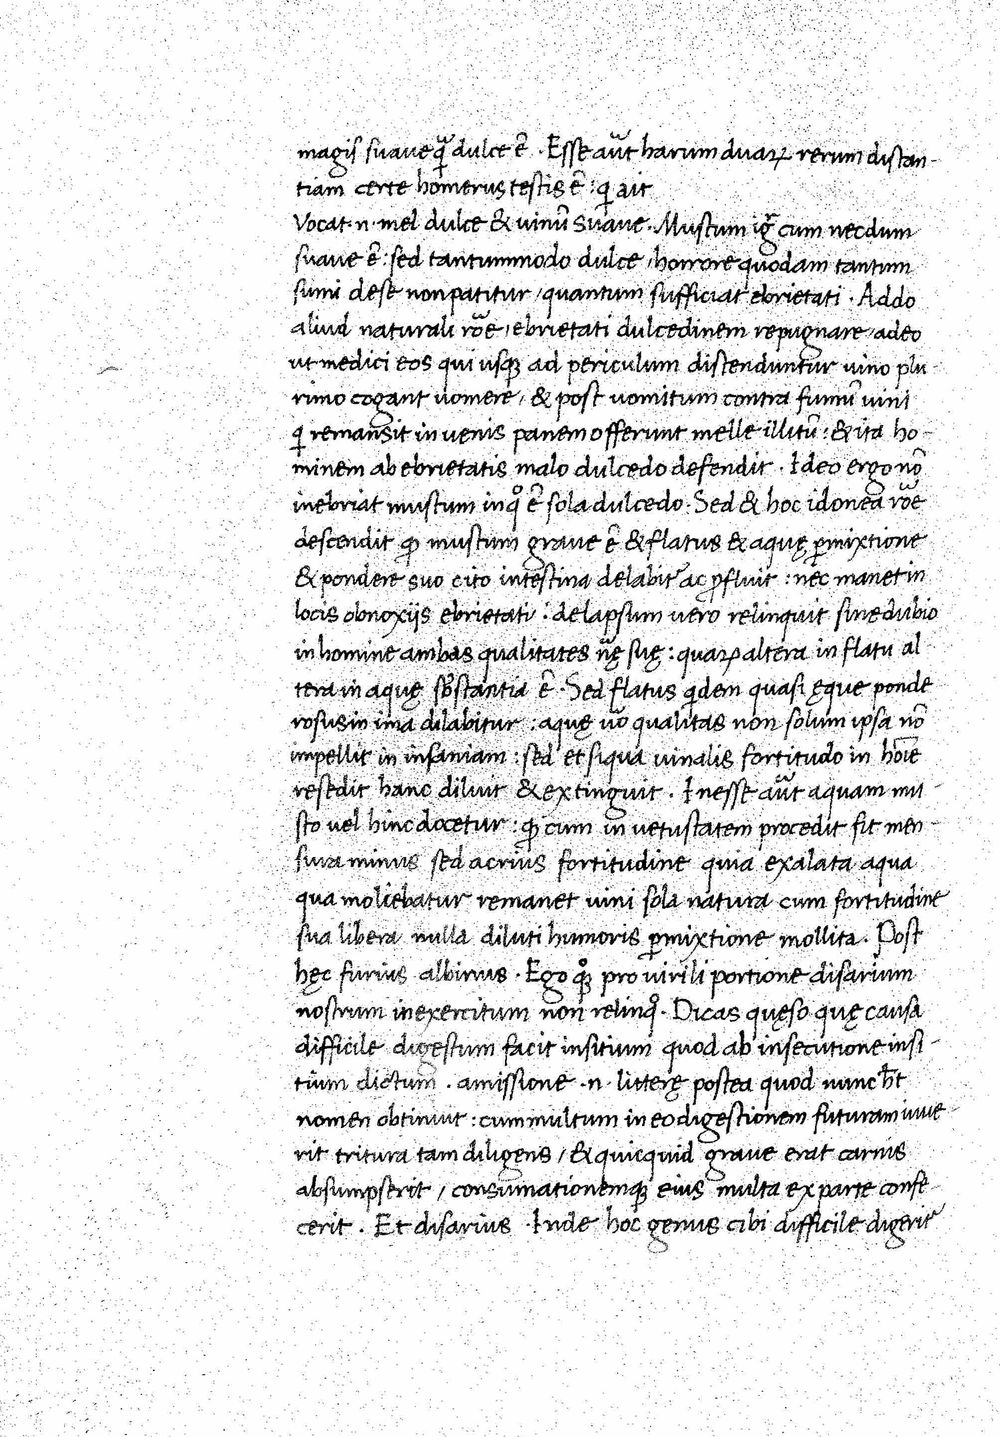 magis suaue q̃ dulce ẽ . Esse aũt harum duaꝝ rerum distan-
tiam certe homerus testis ẽ : qͥ ait
Vocat .n. mel dulce & uinũ suaue . Mustum igr̃ cum necdum
suaue ẽ : sed tantummodo dulce / horrore quodam tantum
sumi de se non patitur / quantum sufficiat ebrietati . Addo
aliud naturali rõe / ebrietati dulcedinem repugnare / adeo
ut medici eos qui usqꝫ ad periculum distenduntur uino plu-
rimo cogant uomere / & post uomitum contra fumũ uini
qͥ remansit in uenis panem offerunt melle illitũ : & ita ho-
minem ab ebrietatis malo dulcedo defendit . Ideo ergo nõ
inebriat mustum in qͦ ẽ sola dulcedo . Sed & hoc idonea rõe
descendit ꝙ mustum graue ẽ & flatus & aquę ꝑmixtione
& pondere suo cito intestina delabit᷑ ac ꝓfluit : nec manet in
locis obnoxijs ebrietati : delapsum uero relinquit sine dubio
in homine ambas qualitates nr̃ę suę : quaꝝ altera in flatu al
tera in aquę sb̃stantia ẽ . Sed flatus qͥdem quasi ęque ponde
rosus in ima dilabitur : aquę uõ qualitas non solum ipsa nõ
impellit in insaniam : sed et siqua uinalis fortitudo in hoĩe
resedit hanc diluit & extinguit . Inesse aũt aquam mu-
sto uel hinc docetur : ꝙ cum in uetustatem procedit fit men-
sura minus sed acrius fortitudine quia exalata aqua
qua moliebatur remanet uini sola natura cum fortitudine
sua libera nulla diluti humoris ꝑmixtione mollita . Post
hęc furius albinus . Ego qͦqꝫ pro uirili portione disarium
nostrum inexercitum non relinqͦ . Dicas quęso quę causa
difficile digestum facit insitium quod ab insecutione insi-
tium dictum . amissione .n. litterę postea quod nunc hẽt
nomen obtinuit : cum multum in eo digestionem futuram iuue-
rit tritura tam diligens / & quicquid graue erat carnis
absumpserit / consumationemqꝫ eius multa ex parte confe-
cerit . Et disarius . Inde hoc genus cibi difficile digerit᷑